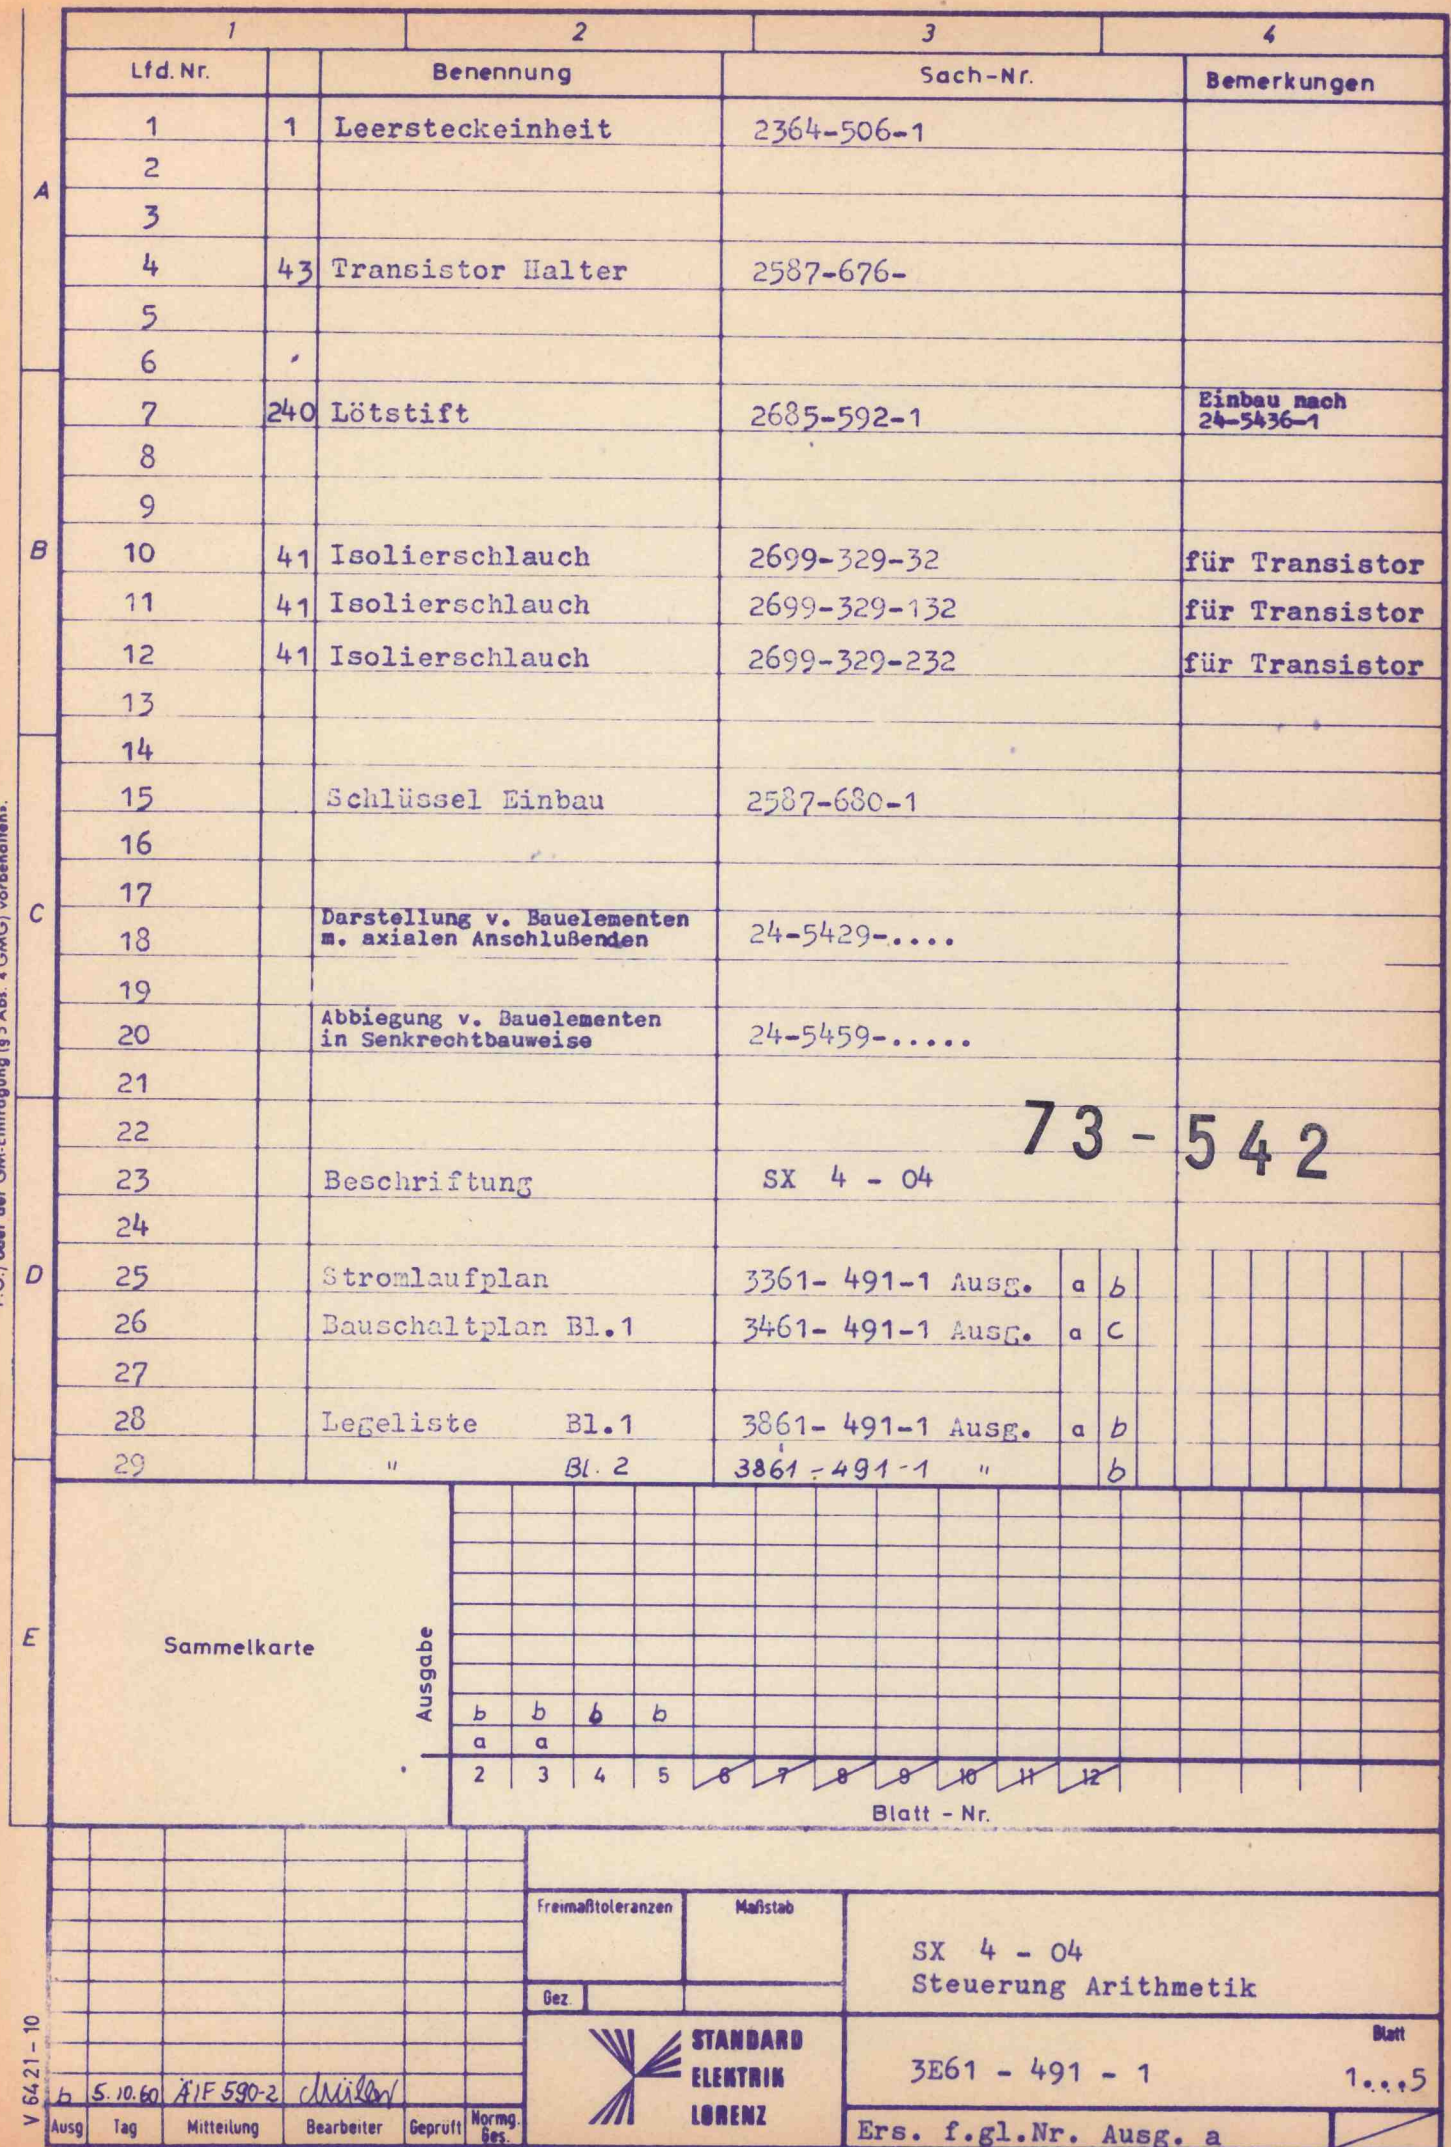 1 2 3 4
Lfd. Nr. Benennung Sach-Nr. Bemerkungen
1 1 Leersteckeinheit 2364-506-1
2
A
3
4 43 Transistor Halter 2587-676-
5
6
7 240 Lötstift 2685-592-1 Einbau nach
24-5436-1
8
9
B
10 41 Isolierschlauch 2699-329-32 für Transistor
11 41 Isolierschlauch 2699-329-132 für Transistor
12 41 Isolierschlauch 2699-329-232 für Transistor
13
14
15 Schlüssel Einbau 2587-680-1
16
17
C
Darstellung v. Bauelementen
18 m. axialen Anschlußenden 24-5429-....
19
Abbiegung v. Bauelementen
20 in Senkrechtbauweise 24-5459-.....
21
22
73-542
23 Beschriftung SX 4 - 04
24
D
25 Stromlaufplan 3361- 491-1 Ausg. a b
26 Bauschaltplan Bl.1 3461- 491-1 Ausg. a c
27
28 Legeliste Bl.1 3861- 491-1 Ausg. a b
29 " Bl. 2 3861-491-1 " b
E
Sammelkarte
Ausgabe
b b b b
a a
2 3 4 5 6 7 8 9 10 11 12
Blatt - Nr.
Freimaßtoleranzen Maßstab
SX 4 - 04
Steuerung Arithmetik
Gez.
STANDARD
ELEKTRIK
LORENZ
Blatt
3E61 - 491 - 1 1...5
Ers. f.gl.Nr. Ausg. a
b 5.10.60 ÄIF 590-2 Müller
Ausg Tag Mitteilung Bearbeiter Geprüft Normg. Ges.
V 6421-10
oder der GM-Eintragung (§ 5 Abs. 4 GMG) vorbehalten.